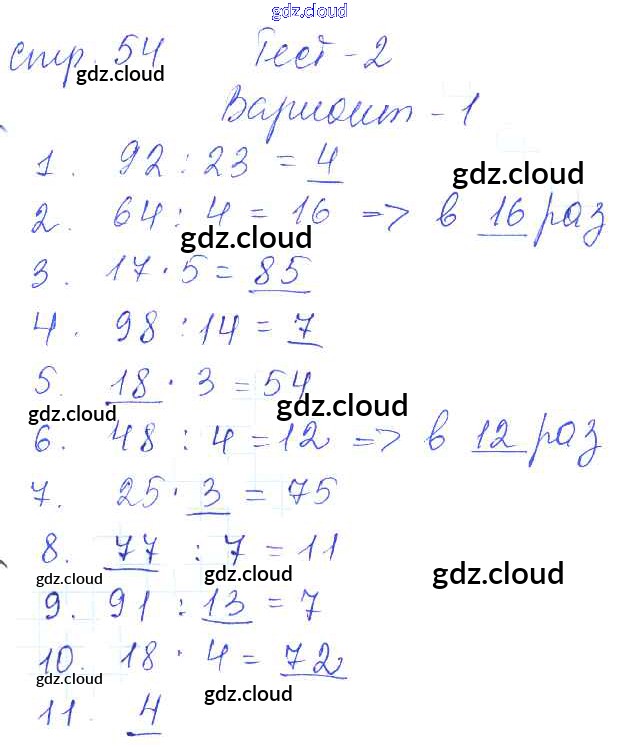 gdz.cloud
стр. 54 Тест-2
gdz.cloud
Вариант-1
1. 92 : 23 = 4
gdz.cloud
2. 64 : 4 = 16 => в 16 раз
gdz.cloud
3. 17 · 5 = 85
4. 98 : 14 = 7
5. 18 · 3 = 54
gdz.cloud gdz.cloud
6. 48 : 4 = 12 => в 12 раз
7. 25 · 3 = 75
8. 77 : 7 = 11
gdz.cloud gdz.cloud gdz.cloud
9. 91 : 13 = 7
10. 18 · 4 = 72
gdz.cloud gdz.cloud
11. 4